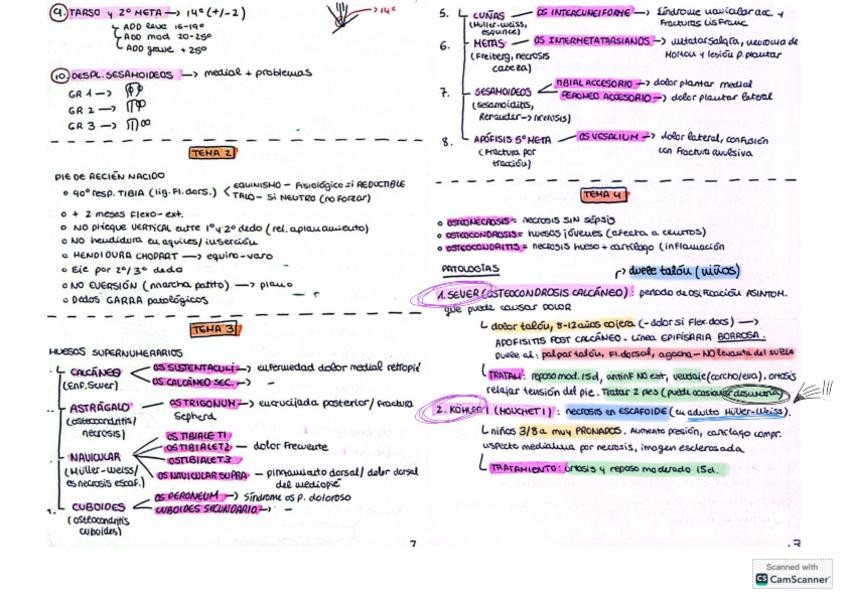 9. TARSO y 2º META → 14º (+/- 2)
→ 14º
ADD leve 16-19º
ADD mod 20-25º
ADD grave + 25º
10. DESPL. SESAMOIDEOS → medial + problemas
GR 1 →
GR 2 →
GR 3 →
TEMA 2
PIE DE RECIÉN NACIDO
90º resp. TIBIA (lig. Fl. dors.) < EQUINISMO - Fisiológico si REDUCTIBLE
TALO - SI NEUTRO (no forzar)
+ 2 meses Flexo-ext.
NO pliegue VERTICAL entre 1º y 2º dedo (rel. aplanamiento)
NO hendidura en aquiles/inserción
HENDIDURA CHOPART → equino-varo
Eje por 2º/3º dedo
NO EVERSIÓN (marcha patito) → plano
Dedos GARRA patológicos
TEMA 3
HUESOS SUPERNUMERARIOS
CALCÁNEO → OS SUSTENTACULI → enfermedad dolor medial retropié
(enf. Sever) OS CALCÁNEO SEC. → -
ASTRÁGALO → OS TRIGONUM → encrucijada posterior/fractura
(osteocondritis/ necrosis) Sepherd
OS TIBIALE T1
NAVICULAR OS TIBIALE T2 - dolor Frecuente
(Müller-weiss/ OS TIBIALE T3
es necrosis escaf.) OS NAVICULAR SUPRA - pinzamiento dorsal/dolor dorsal
del mediopié
CUBOIDES OS PERONEUM → Síndrome os p. doloroso
(osteocondritis CUBOIDES SECUNDARIO → -
cuboides)
5. CUÑAS → OS INTERCUNEIFORME → Síndrome navicular acc. y
(Müller-weiss, esguince) Fracturas Lisfranc
6. METAS → OS INTERMETATARSIANOS → metatarsalgia, neuroma de
(Freiberg, necrosis cabeza) Morton y lesión p. plantar
7. SESAMOIDEOS TIBIAL ACCESORIO → dolor plantar medial
PERONEO ACCESORIO → dolor plantar lateral
(sesamoiditis,
Renander → necrosis)
8. APÓFISIS 5º META → OS VESALIUM → dolor lateral, confusión
(Fractura por tracción) con Fractura avulsiva
TEMA 4
OSTEONECROSIS = necrosis SIN SÉPSIS
OSTEOCONDROSIS = huesos jóvenes (afecta a centros)
OSTEOCONDRITIS = necrosis hueso + cartílago (inflamación
PATOLOGÍAS
→ duele talón (niños)
1. SEVER (OSTEOCONDROSIS CALCÁNEO): periodo de osificación ASINTOM.
que puede causar DOLOR
dolor talón, 8-12 años cojera (- dolor si Flex. dors) →
APOFISITIS POST CALCÁNEO. LÍNEA EPIFISARIA BORROSA.
Duele al: palpar talón, Fl. dorsal, agacha - NO levanta del suelo
TRATAM: reposo mod. 15d, antiinf NO est, vendaje (corcho/eva), ortosis
relajar tensión del pie. Tratar 2 pies (puede ocasionar desviación)
2. KÖHLER I (MOUCHET I): necrosis en ESCAFOIDE (en adulto Müller-Weiss).
niños 3/8a muy PRONADOS. Aumento presión, cartílago compr.
aspecto medialuna por necrosis, imagen esclerosada
TRATAMIENTO: ortosis y reposo moderado 15d.
Scanned with
CS CamScanner